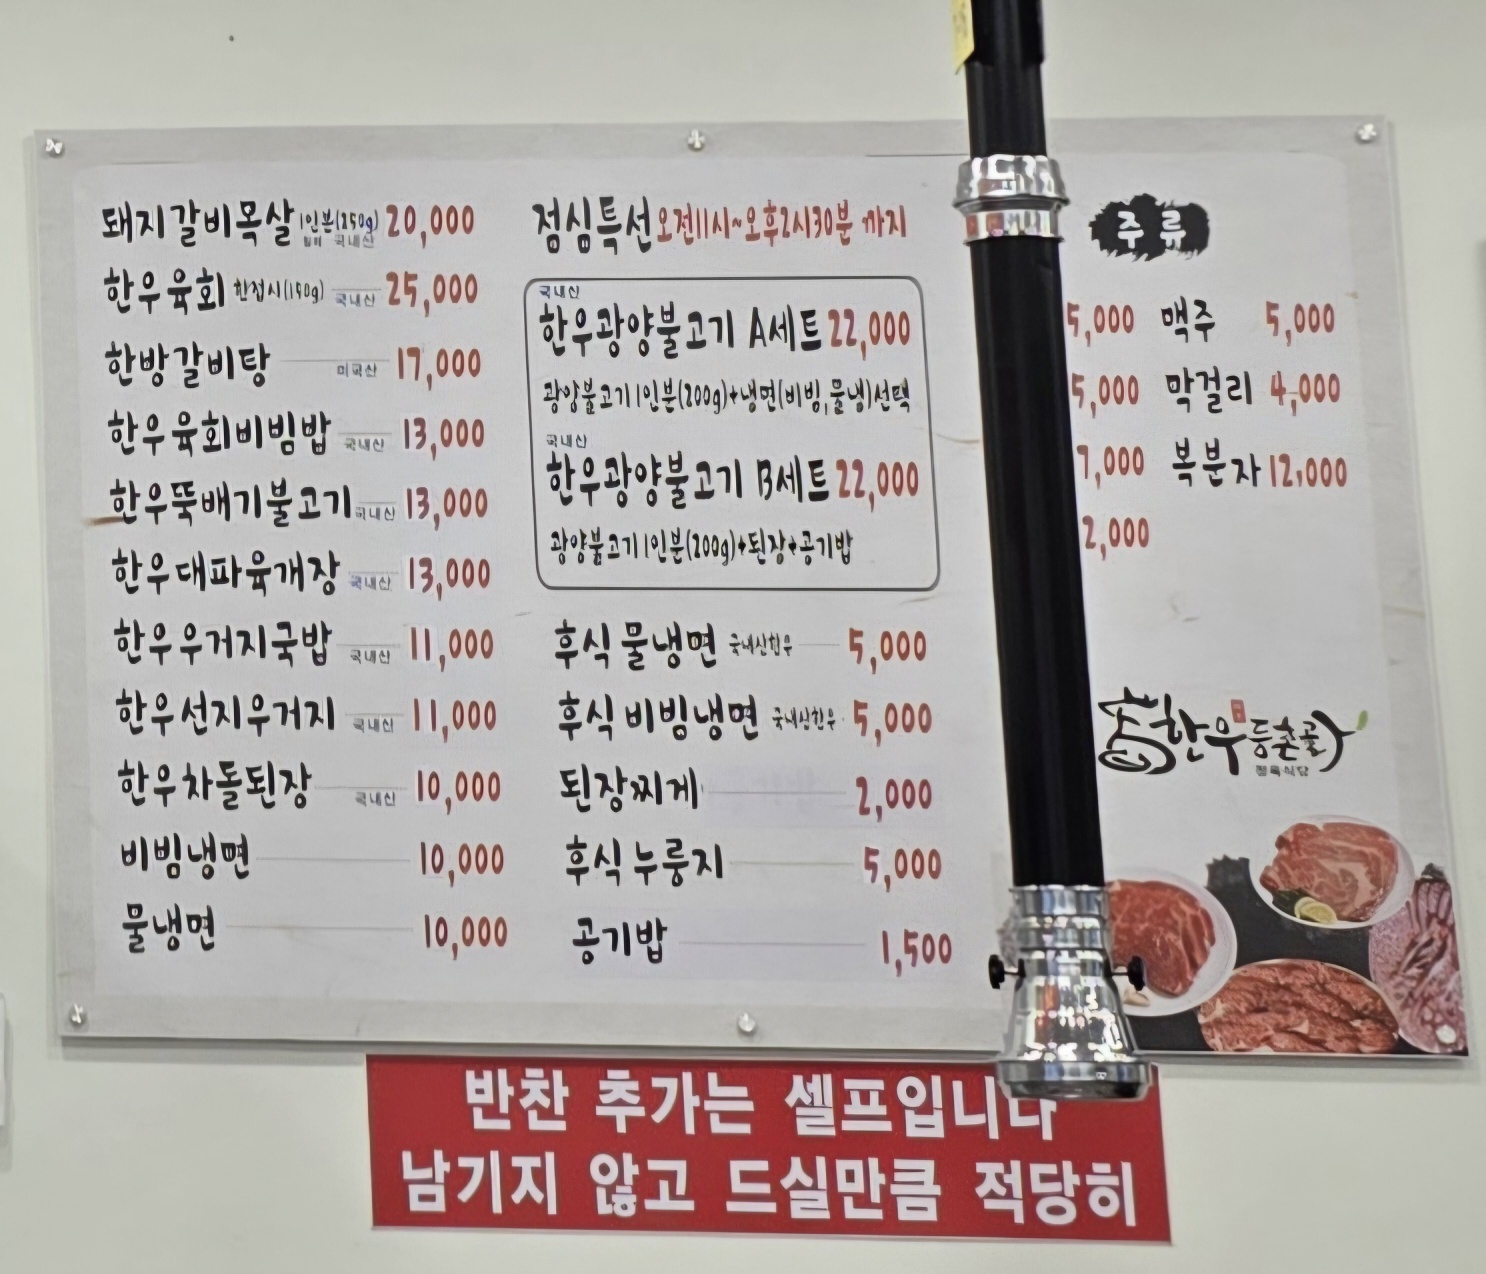 돼지갈비목살 1인분(250g) 국내산 20,000
한우육회 한접시(150g) 국내산 25,000
한방갈비탕 미국산 17,000
한우육회비빔밥 국내산 13,000
한우뚝배기불고기 국내산 13,000
한우대파육개장 국내산 13,000
한우우거지국밥 국내산 11,000
한우선지우거지 국내산 11,000
한우차돌된장 국내산 10,000
비빔냉면 10,000
물냉면 10,000
점심특선 오전11시~오후2시30분 까지
국내산
한우광양불고기 A세트 22,000
광양불고기1인분(200g)+냉면(비빙,물냉)선택
국내산
한우광양불고기 B세트 22,000
광양불고기1인분(200g)+된장+공기밥
후식 물냉면 국내산한우 5,000
후식 비빔냉면 국내산한우 5,000
된장찌게 2,000
후식 누룽지 5,000
공기밥 1,500
주류
5,000 맥주 5,000
5,000 막걸리 4,000
7,000 복분자 12,000
2,000
참한우 등촌골
정육식당
반찬 추가는 셀프입니다
남기지 않고 드실만큼 적당히